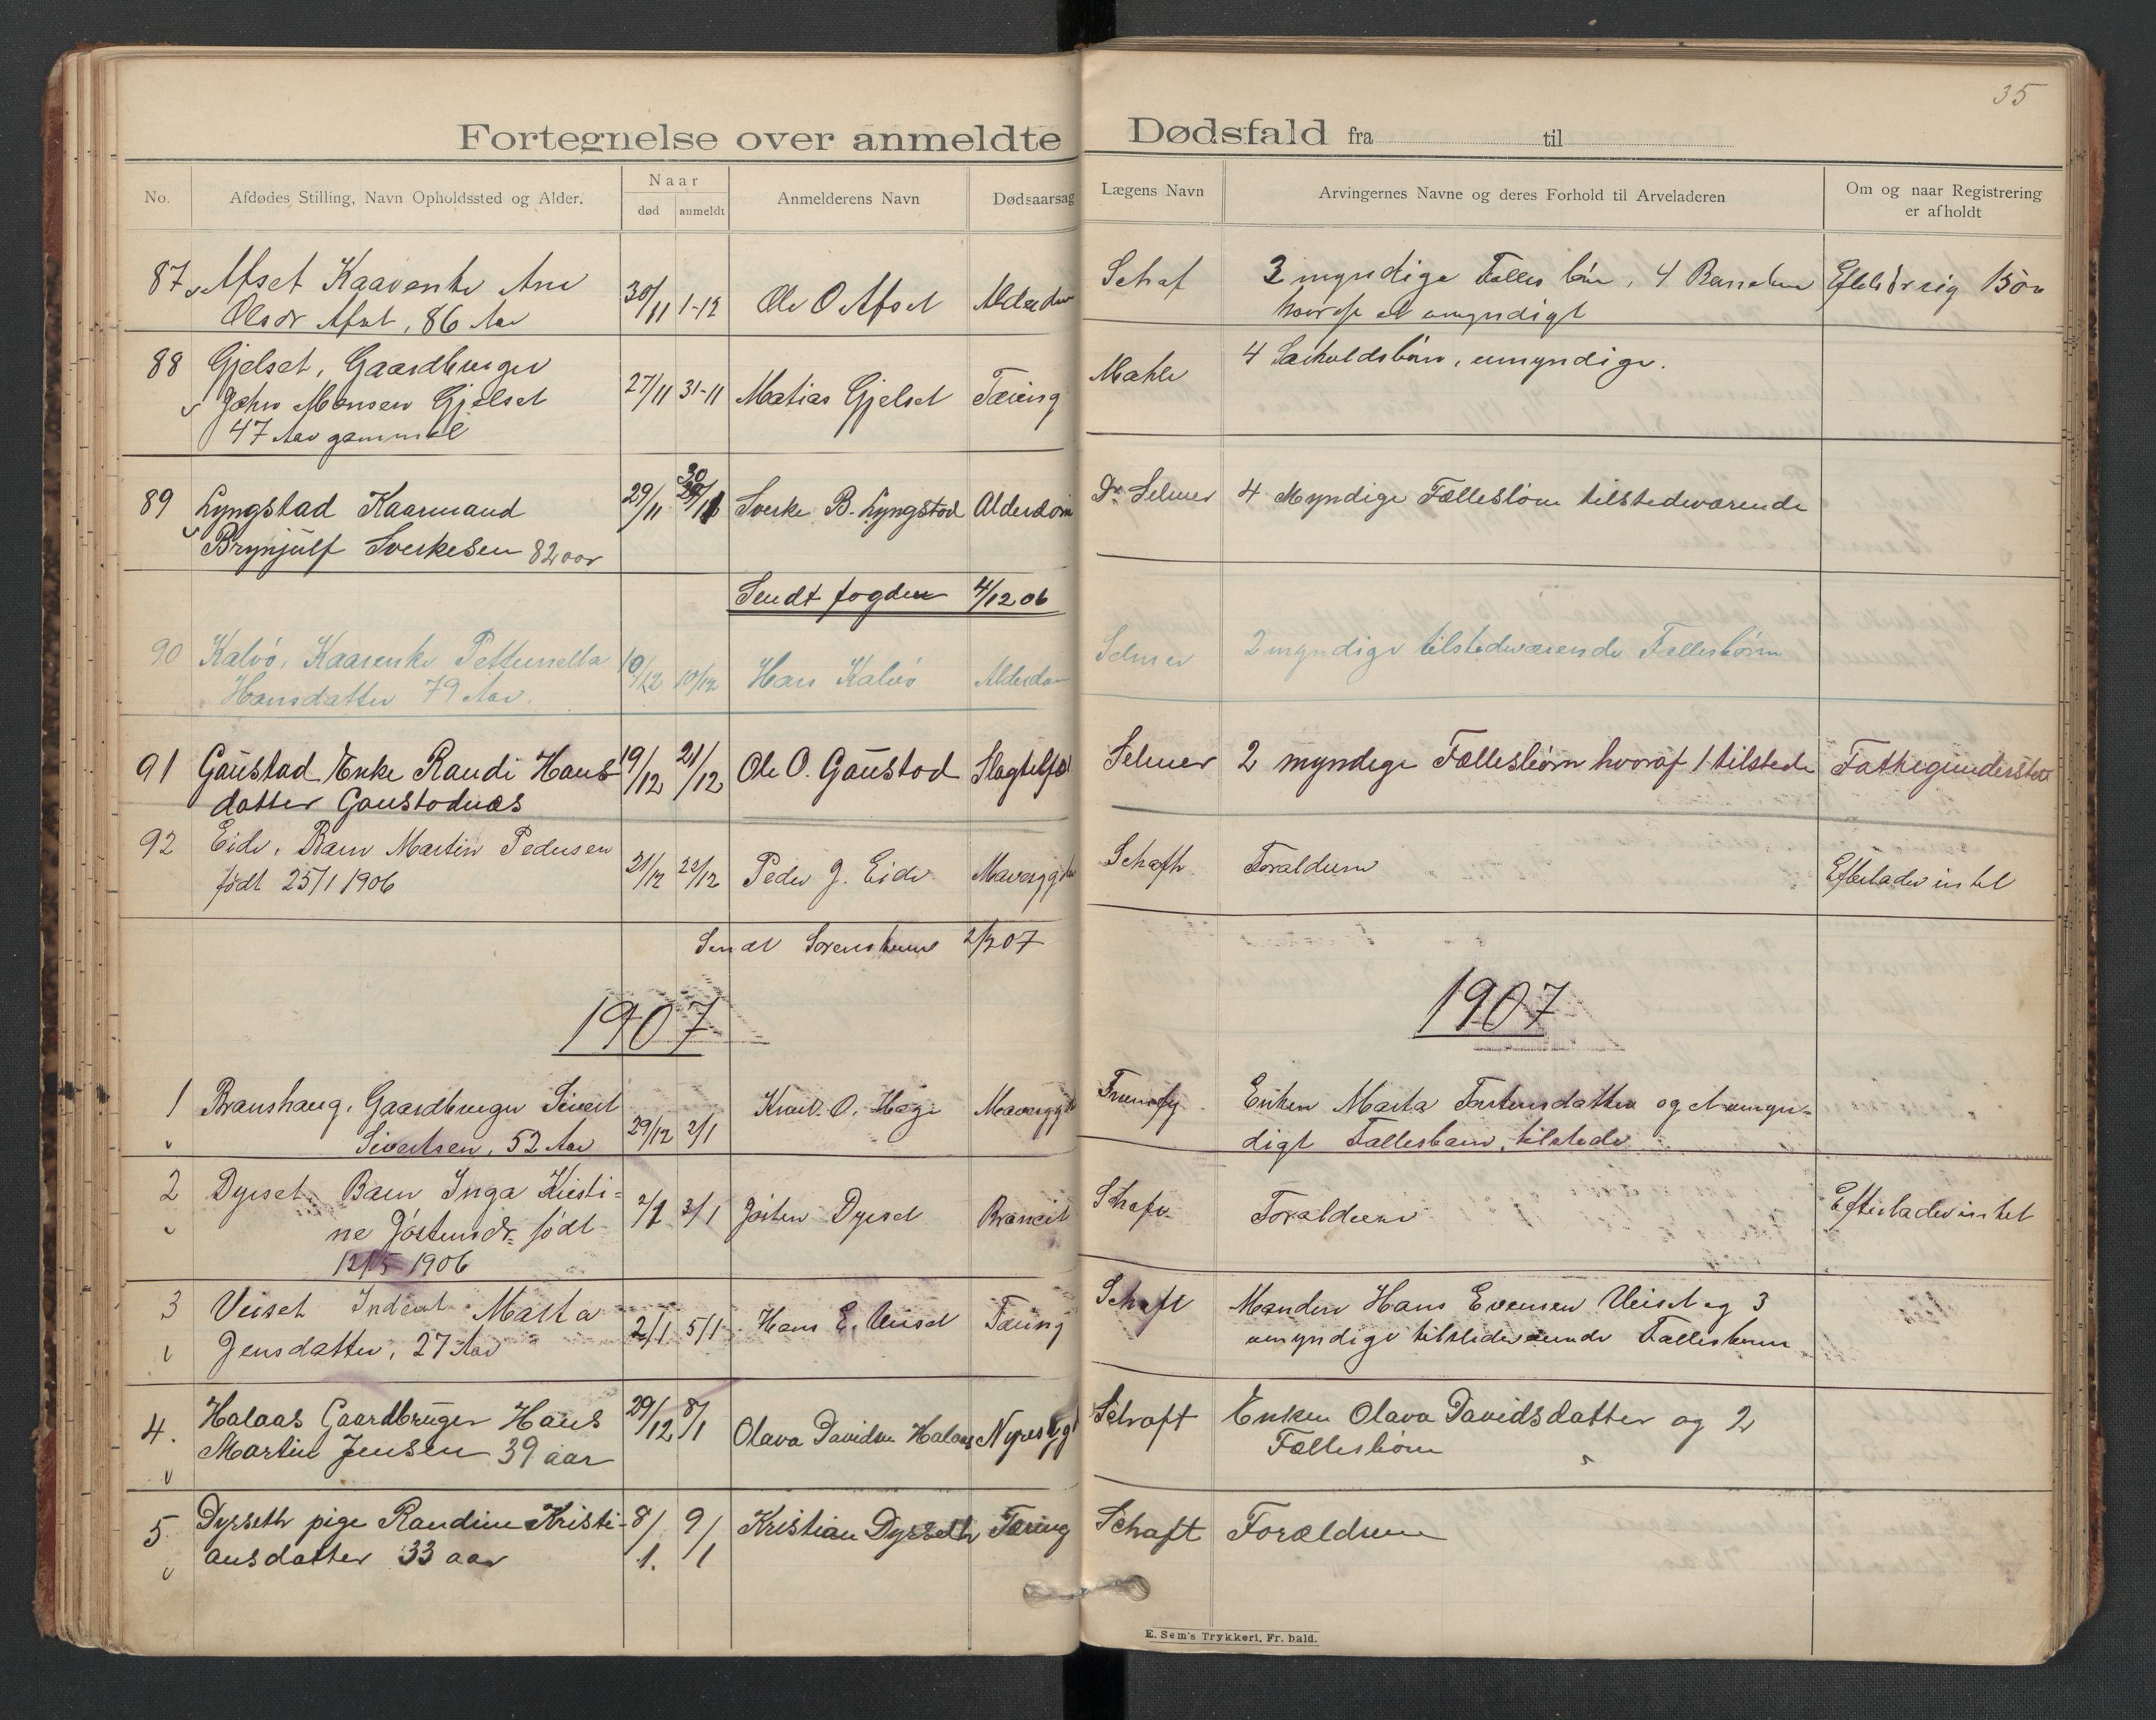 35
Fortegnelse over anmeldte Dødsfald fra til
No.
Afdødes Stilling, Navn Opholdssted og Alder.
Naar
død
anmeldt
Anmelderens Navn
Dødsaarsag
Lægens Navn
Arvingernes Navne og deres Forhold til Arveladeren
Om og naar Registrering
er afholdt
87 Afset Kaarenke Ane 30/11 1-12 Ole O Afset
Olsdr Afset, 86 Aar
Schaft
myndige Fælles
hvoraf et umyndigt
88 Gjelset, Gaardbruger 27/11 31-11 Matias Gjelset Tæring
John Monsen Gjelset
47 Aar gammel
Mahle 4 umyndige.
89 Lyngstad Kaarmand 29/11 30/11 Sverke B. Lyngstad Alderdom
Brynjulf Sverkesen 82 aar
Dr. Selmer 4 Myndige Fællesbörn tilstedeværende
Sendt fogden 4/12 06
90 Kalvö, Kaarenke 10/12 10/12 Hans Kalvö Alderdom
Hansdatter 79 Aar.
Selmer 2 myndige tilstedeværende Fællesbörn
91 Gaustad Enke Randi Hans- 19/12 21/12 Ole O. Gaustad
datter Gaustadnæs
Selmer 2 myndige Fællesbörn hvoraf 1 tilstede
92 Eide, Barn Martin Pedersen 21/12 22/12 Peder J. Eide
født 25/1 1906
Schaft Forældrene Efterlader intet
Sendt Sorenskrive
1907
1907
1 Gaardbruger Sivert 29/12 2/1 Knut O.
Sivertsen, 52 Aar
Enken Marta Torstensdatter og et umyn-
digt Fællesbarn, tilstede
2 Dyrset, Barn Inga Kristi- 2/1 3/1 Jösten Dyrset
ne Jöstensdr. født
12/5 1906
Schaft Forældrene Efterlader intet
3 Veiset Marta 2/1 5/1 Hans E. Veiset Tæring
Jensdatter, 27 Aar
Schaft Manden Hans Evensen Veiset og 3
umyndige tilstedeværende Fællesbørn
4. Halaas Gaardbruger Hans 29/12 8/1 Olava Davidsen Halaas
Martin Jensen 39 aar
Schaft Enken Olava Davidsdatter og 2
Fællesbörn
5 Dyrseth pige Randine Kristi- 8/1. 9/1 Kristian Dyrseth Tæring
ansdatter 33 aar
Schaft Forældrene
E. Sem's Trykkeri, Fr. hald.